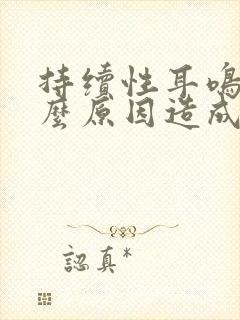 持续性耳鸣
麼原因造成
認真*